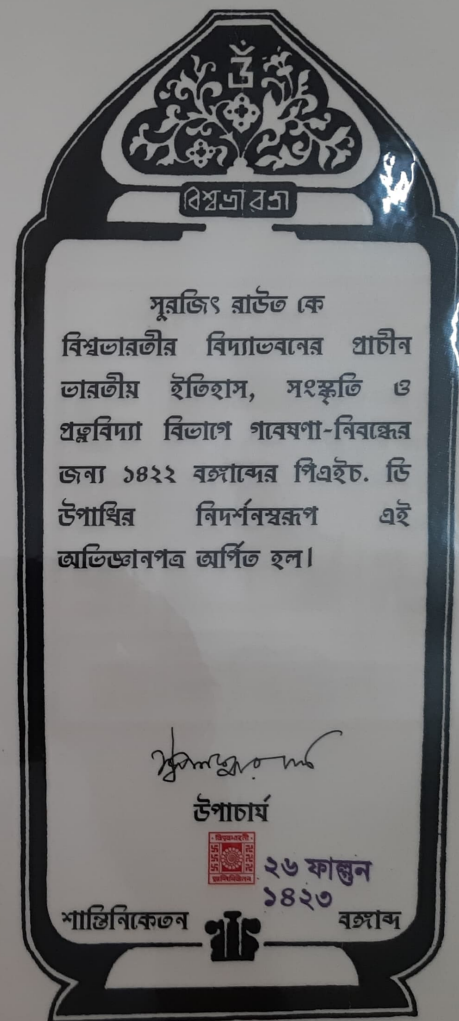 ওঁ
বিশ্বভারতী
সুরজিৎ রাউত কে
বিশ্বভারতীর বিদ্যাভবনের প্রাচীন
ভারতীয় ইতিহাস, সংস্কৃতি ও
প্রত্নবিদ্যা বিভাগে গবেষণা-নিবন্ধের
জন্য ১৪২২ বঙ্গাব্দের পিএইচ. ডি
উপাধির নিদর্শনস্বরূপ এই
অভিজ্ঞানপত্র অর্পিত হল।
উপাচার্য
২৬ ফাল্গুন
১৪২৩
শান্তিনিকেতন বঙ্গাব্দ